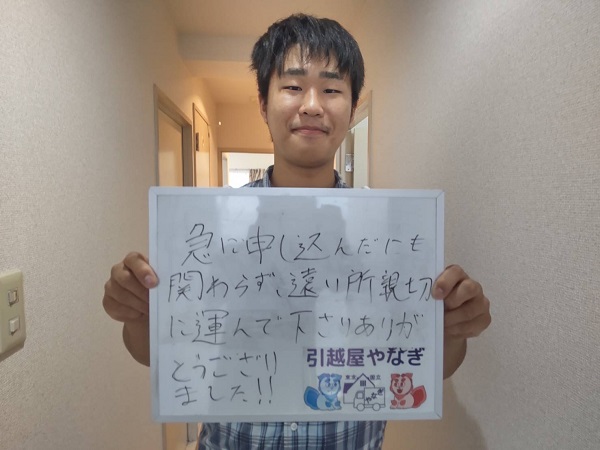 急に申し込んだにも
関わらず、遠い所親切
に運んで下さりありが
とうござい
ました!!
引越屋やなぎ
やなぎ